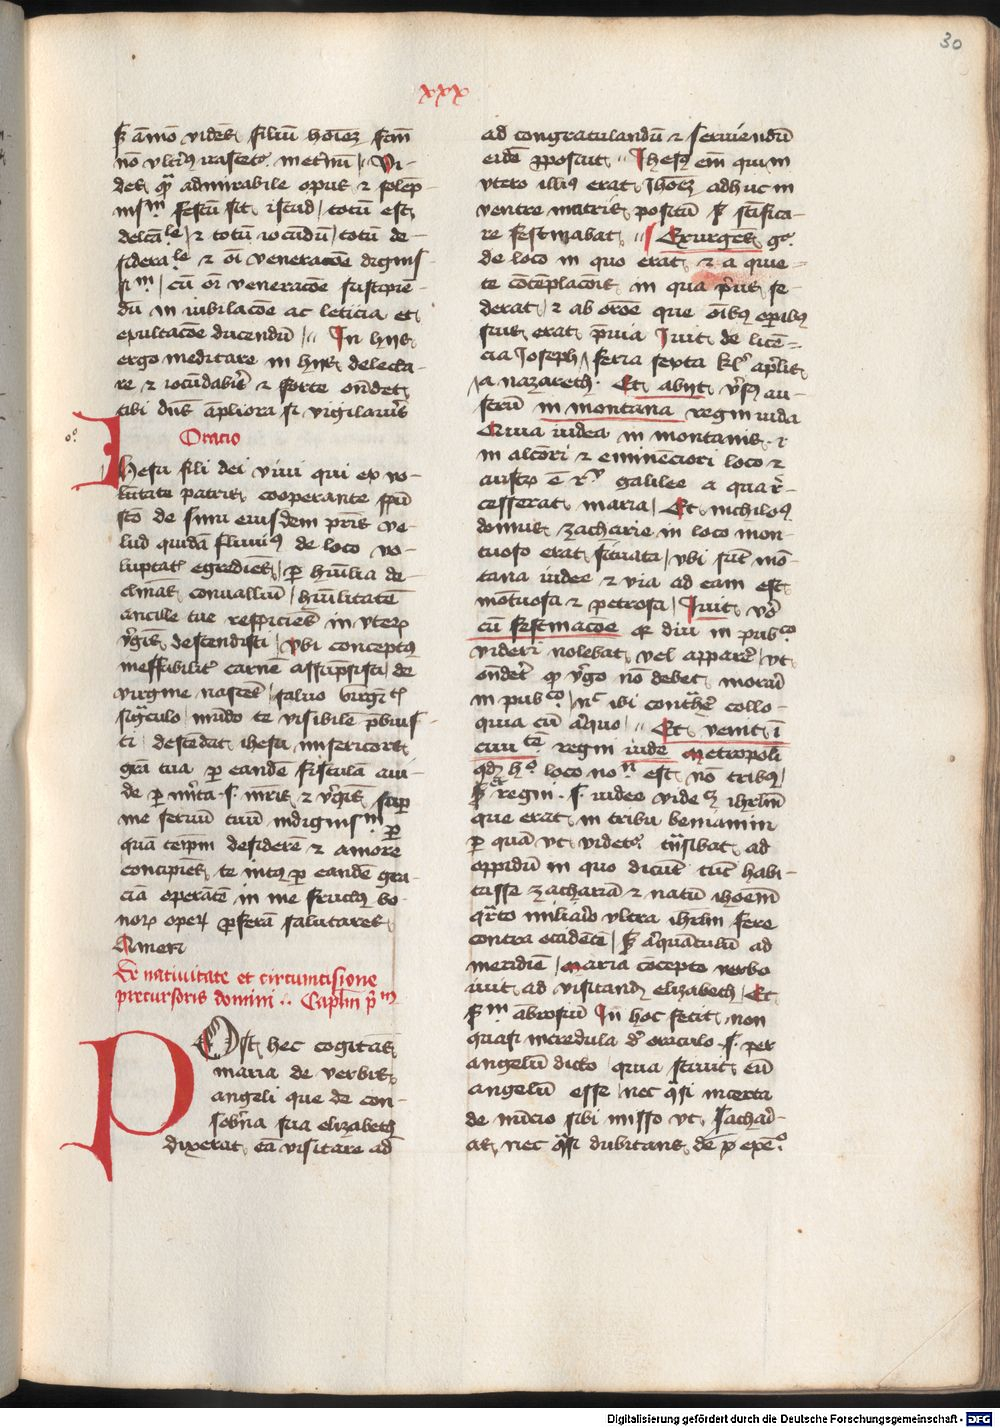 30
xxx
sꝫ a᷑mo᷑ vides filiu᷑ ho᷑i᷑e᷑ scd᷑m
no᷑ vlt᷑i᷑ꝰ
des qr᷑ admirabile opus ⁊ solep-
nissᵐ festu᷑ sit istud / totu᷑ est
delc̃aˡᵉ / ⁊ totu᷑ iocu᷑du᷑ / totu᷑ de-
sideraˡᵉ ⁊ oi᷑ venerac̃o᷑e dignis
siᵐ / cu᷑ oi᷑ venerac̃o᷑e suscipie-
du᷑ in iubilac̃o᷑e ac leticia et
exultac̃o᷑e ducendu᷑ // In hijs
ergo meditare in hijs delecta-
re ⁊ iocu᷑dabit᷑ ⁊ forte onde᷑t
tibi dn᷑s a᷑pliora si vigilau᷑is
Oratio
Jhesu fili dei viui qui ex vo-
lu᷑tate patris cooperante spu᷑
sc̃o de sinu eiusdem pr᷑is ve-
lud quida᷑ fluuiꝰ de loco vo-
luptat᷑ egredie᷑s / ꝑ hui᷑lia de-
clina᷑s conualliu᷑ / hui᷑litate᷑
ancille tue respicie᷑s in vtero
v᷑gi᷑s descendisti / vbi conceptꝰ
ineffabilit᷑ carne᷑ assu᷑psisti / de
virgine nasce᷑s / saluo virgi᷑ˡ
sig᷑culo / mu᷑do te visibile᷑ p᷑buis-
ti descendat ihesu misericors
gr᷑a tua ꝑ eande᷑ fistula᷑ aui-
de ꝑ mr᷑ita .s. mr᷑is ⁊ v᷑gi᷑s suꝑ
me seruu᷑ tuu᷑ indignissᵐ ꝑ
qua᷑ teip᷑m desidere᷑ ⁊ amore
concipie᷑s te intꝰ ꝑ eande᷑ gra-
cia᷑ operate᷑ in me fructꝰ bo-
noꝝ opeꝝ ꝓfera᷑ salutares
Amen
De natiuitate et circumcisione
precursoris domini .. Caplm᷑ pᵐ
POst hec cogitas
maria de verbis
angeli que de con-
sobri᷑a sua elizabeth
dixerat ea᷑ visitare ad
ad congratulandu᷑ ⁊ seruiendu᷑
eide᷑ ꝓposuit // Jhesꝰ em᷑ qui in
vtero illiꝰ erat Joh᷑em adhuc in
ventre matris positu᷑ sꝫ sc̃ifica-
re festinabat // Exurge᷑s gᵒ
de loco in quo erat ⁊ a quie-
te co᷑te᷑placo᷑is in qua p᷑us se-
derat / ⁊ ab oro᷑e que oi᷑bꝰ op᷑ibꝰ
suis erat p᷑uia Iuit de lice᷑-
cia Joseph / feria sexta kl᷑ ap᷑lis
a nazareth. Et abijt v᷑sꝰ au-
stru᷑ in montana regni iuda
Quia iudea in montanis ⁊
in alcio᷑ri ⁊ eminenciori loco ⁊
austro e᷑ galilee a qua re-
cesserat maria / Et nichilo᷑ꝰ
domus zacharie in loco mon-
tuoso erat situata / vbi su᷑t mo᷑-
tana iudee ⁊ via ad eam est
mo᷑tuosa ⁊ petrosa / Iuit v᷑o
cu᷑ festinaco᷑e qꝛ diu in pubᶜᵒ
videri nolebat vel appare᷑ / vt
onde᷑t ꝙ v᷑go no᷑ debet morari
in pubᶜᵒ / nᶜ ibi cont᷑he᷑ collo-
quia cu᷑ aliquo // Et venit i᷑
ciuiᵗᵉ᷑ regni iude metropoli
qd᷑ hᵒ loco noⁿ est no᷑ tribꝰ /
sꝫ regni .s. iudee videꝫ ihrl᷑m
que erat in tribu beniamin
ꝑ qua᷑ vt videtᵒ t᷑nsibat ad
oppidu᷑ in quo dicu᷑t tu᷑c habi-
tasse zacharia᷑ ⁊ natu᷑ ioh᷑em
q᷑rto miliari᷑o vltra ihrl᷑m fere
contra occidente᷑ / sꝫ aliqua᷑tulu᷑ ad
meridie᷑ / maria co᷑cepto verbo
iuit ad visitandꝫ elizabeth / Et
sᵐ ambrosiu᷑ In hoc fecit non
quasi incredula de oraculo .s. per
angelu᷑ dicto / quia sciuit eu᷑
angelu᷑ esse / nec q᷑si incerta
de nu᷑cio sibi misso vt zachari-
as, nec q᷑si dubitans de
Digitalisierung gefördert durch die Deutsche Forschungsgemeinschaft - DFG